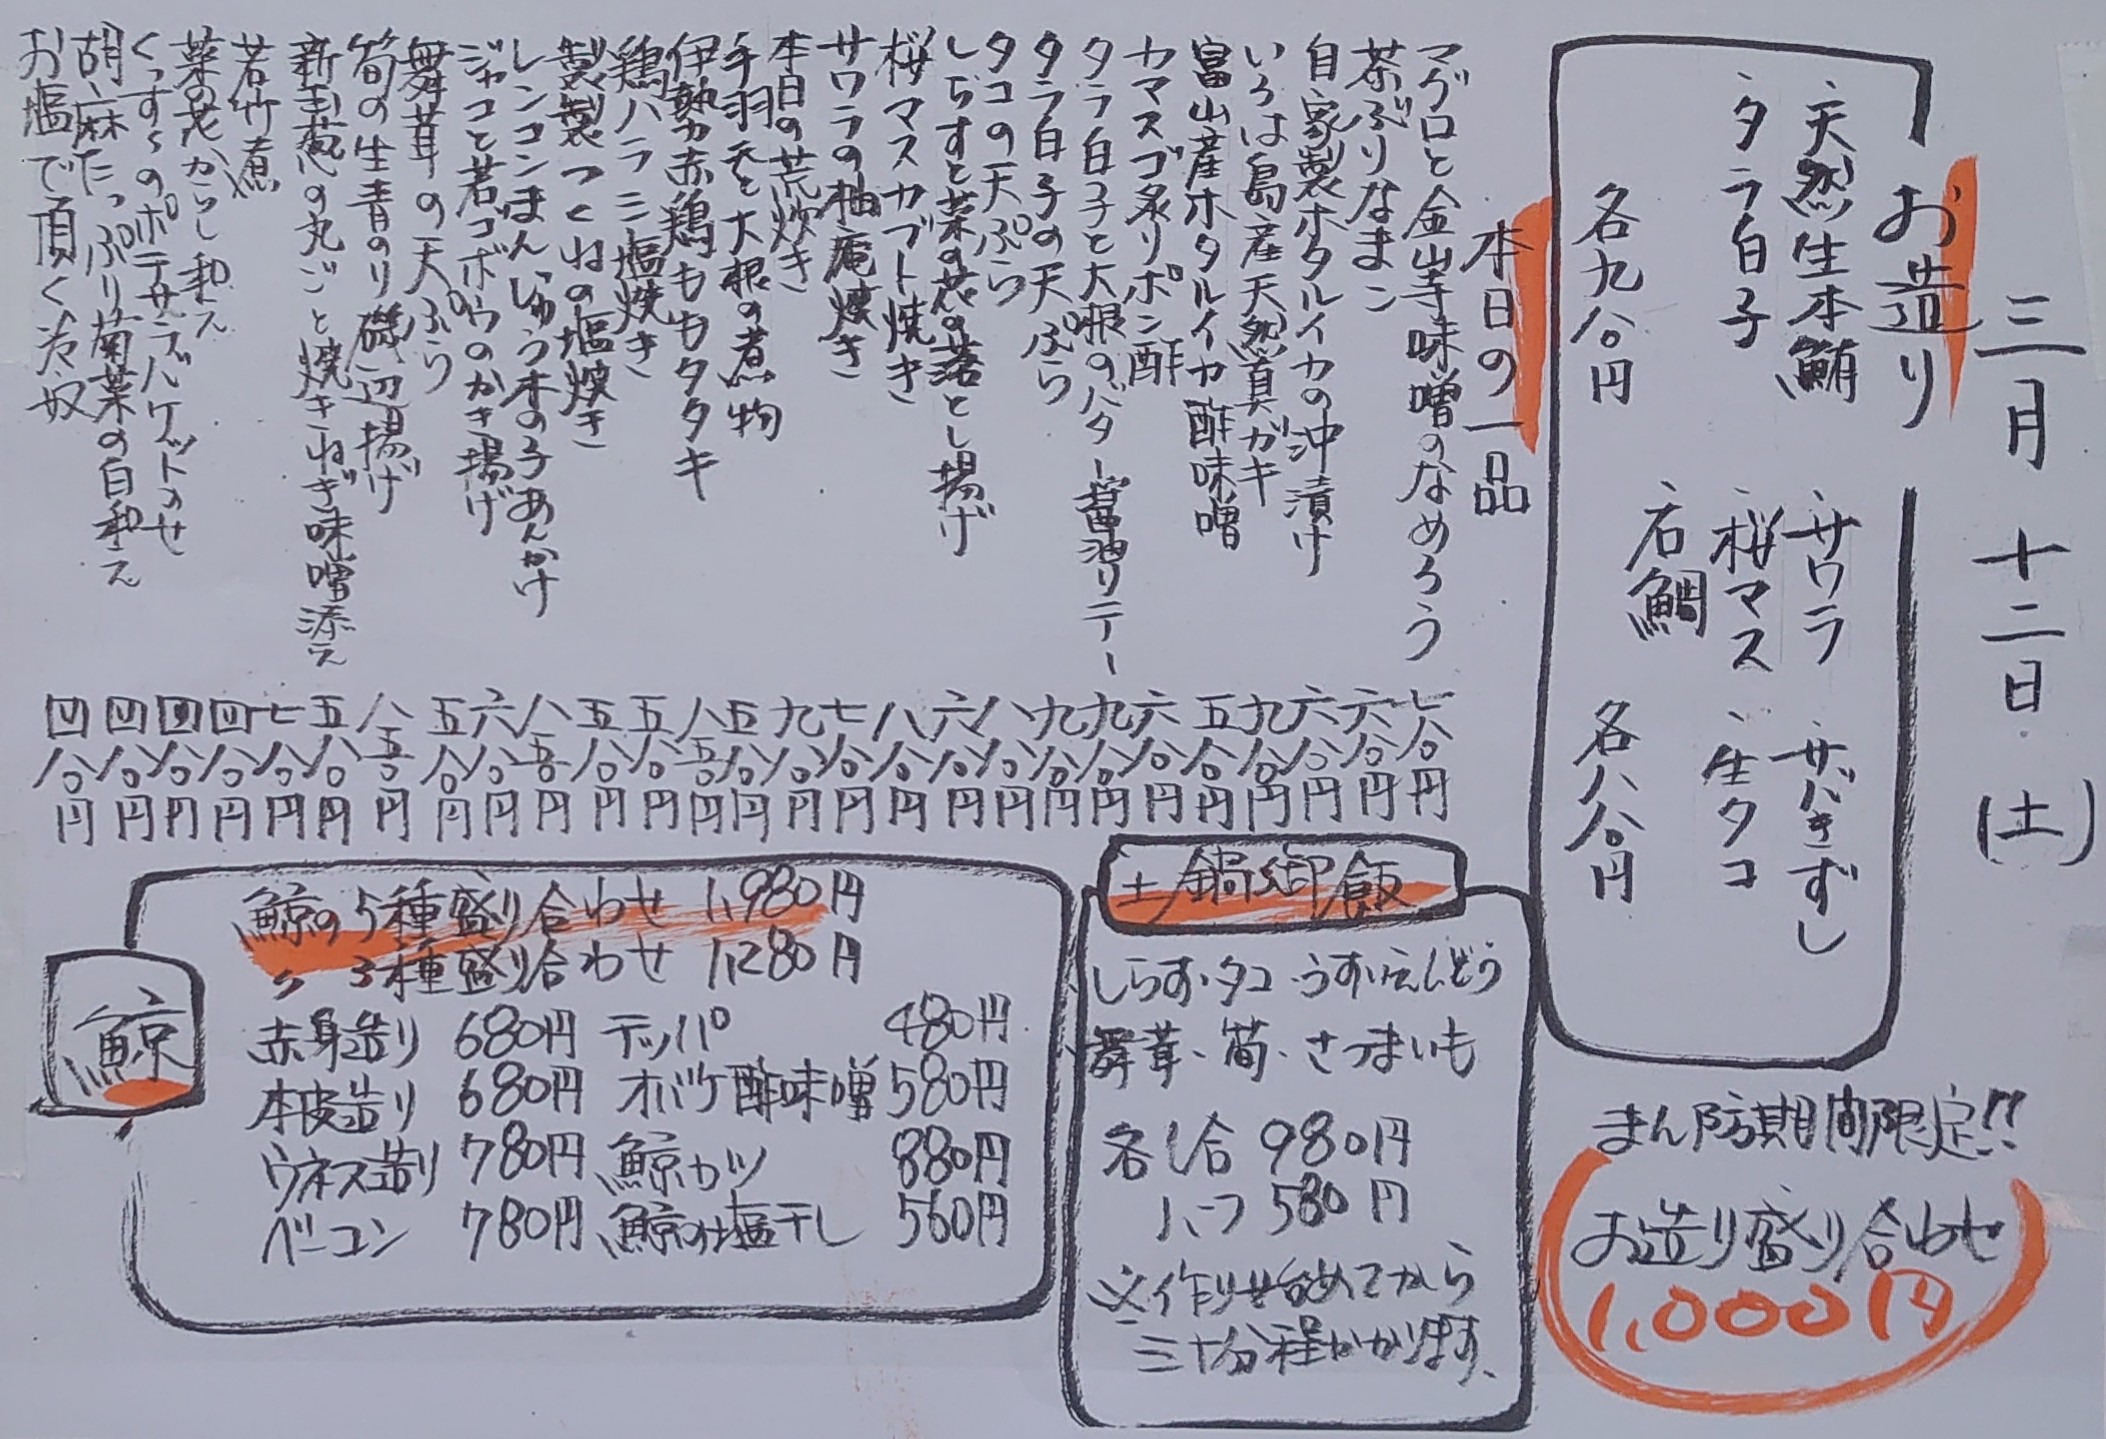 三月十二日(土)
お造り
・天然生本鮪
・タラ白子
各九八〇円
・サワラ
・桜マス
・石鯛
・サバきずし
・生タコ
各八八〇円
まん防期間限定!!
お造り盛り合わせ
1,000円
本日の一品
マグロと金山寺味噌のなめろう 七八〇円
茶ぶりなまこ 六八〇円
自家製ホタルイカの沖漬け 六八〇円
いろは島産天然真ガキ 九八〇円
富山産ホタルイカ酢味噌 五八〇円
カマスゴ炙りポン酢 六八〇円
タラ白子と大根のバター醤油ソテー 九八〇円
タラ白子の天ぷら 九八〇円
タコの天ぷら 八八〇円
しらすと菜の花の落とし揚げ 六八〇円
桜マスカブト焼き 八八〇円
サワラの柚庵焼き 七八〇円
本日の荒炊き 九八〇円
手羽元と大根の煮物 五八〇円
伊勢赤鶏ももタタキ 八五〇円
鶏ハラミ塩焼き 五八〇円
製つくねの塩焼き 五八〇円
レンコンまんじゅう木の子あんかけ 八五〇円
ジャコと若ゴボウのかき揚げ 六八〇円
舞茸の天ぷら 五八〇円
筍の生青のり磯辺揚げ 八五〇円
新玉葱の丸ごと焼きねぎ味噌添え 五八〇円
若竹煮 七八〇円
菜の花からし和え 四八〇円
くっすのポテサラバケットのせ 四八〇円
胡麻たっぷり菊菜の白和え 四八〇円
お塩で頂く冷奴 四八〇円
土鍋御飯
しらす・タコ・うすいえんどう
舞茸・筍・さつまいも
各1合 980円
ハーフ 580円
※作り始めてから
三十分程かかります。
鯨
鯨の5種盛り合わせ 1,980円
〃 3種盛り合わせ 1,280円
赤身造り 680円 テッパ 480円
本皮造り 680円 オバケ酢味噌 580円
ウネス造り 780円 鯨カツ 880円
ベーコン 780円 鯨の塩干し 560円